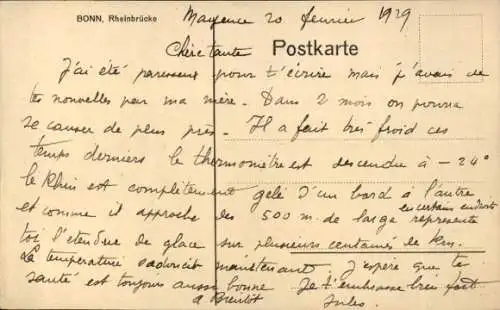 BONN, Rheinbrücke
Mayence 20 février 1929
Chère tante
Postkarte
J'ai été paresseux pour t'écrire mais j'avais de
tes nouvelles par ma mère. Dans 2 mois on pourra
se causer de plus près. Il a fait très froid ces
temps derniers le thermomètre est descendu à - 24°
le Rhin est complètement gelé d'un bord à l'autre
et comme il approche les 500 m. de large en certains endroits représente
toi l'étendue de glace sur plusieurs centaines de Km.
La température s'adoucit maintenant J'espère que ta
santé est toujours aussi bonne Je t'embrasse bien fort
a Bientôt Jules.